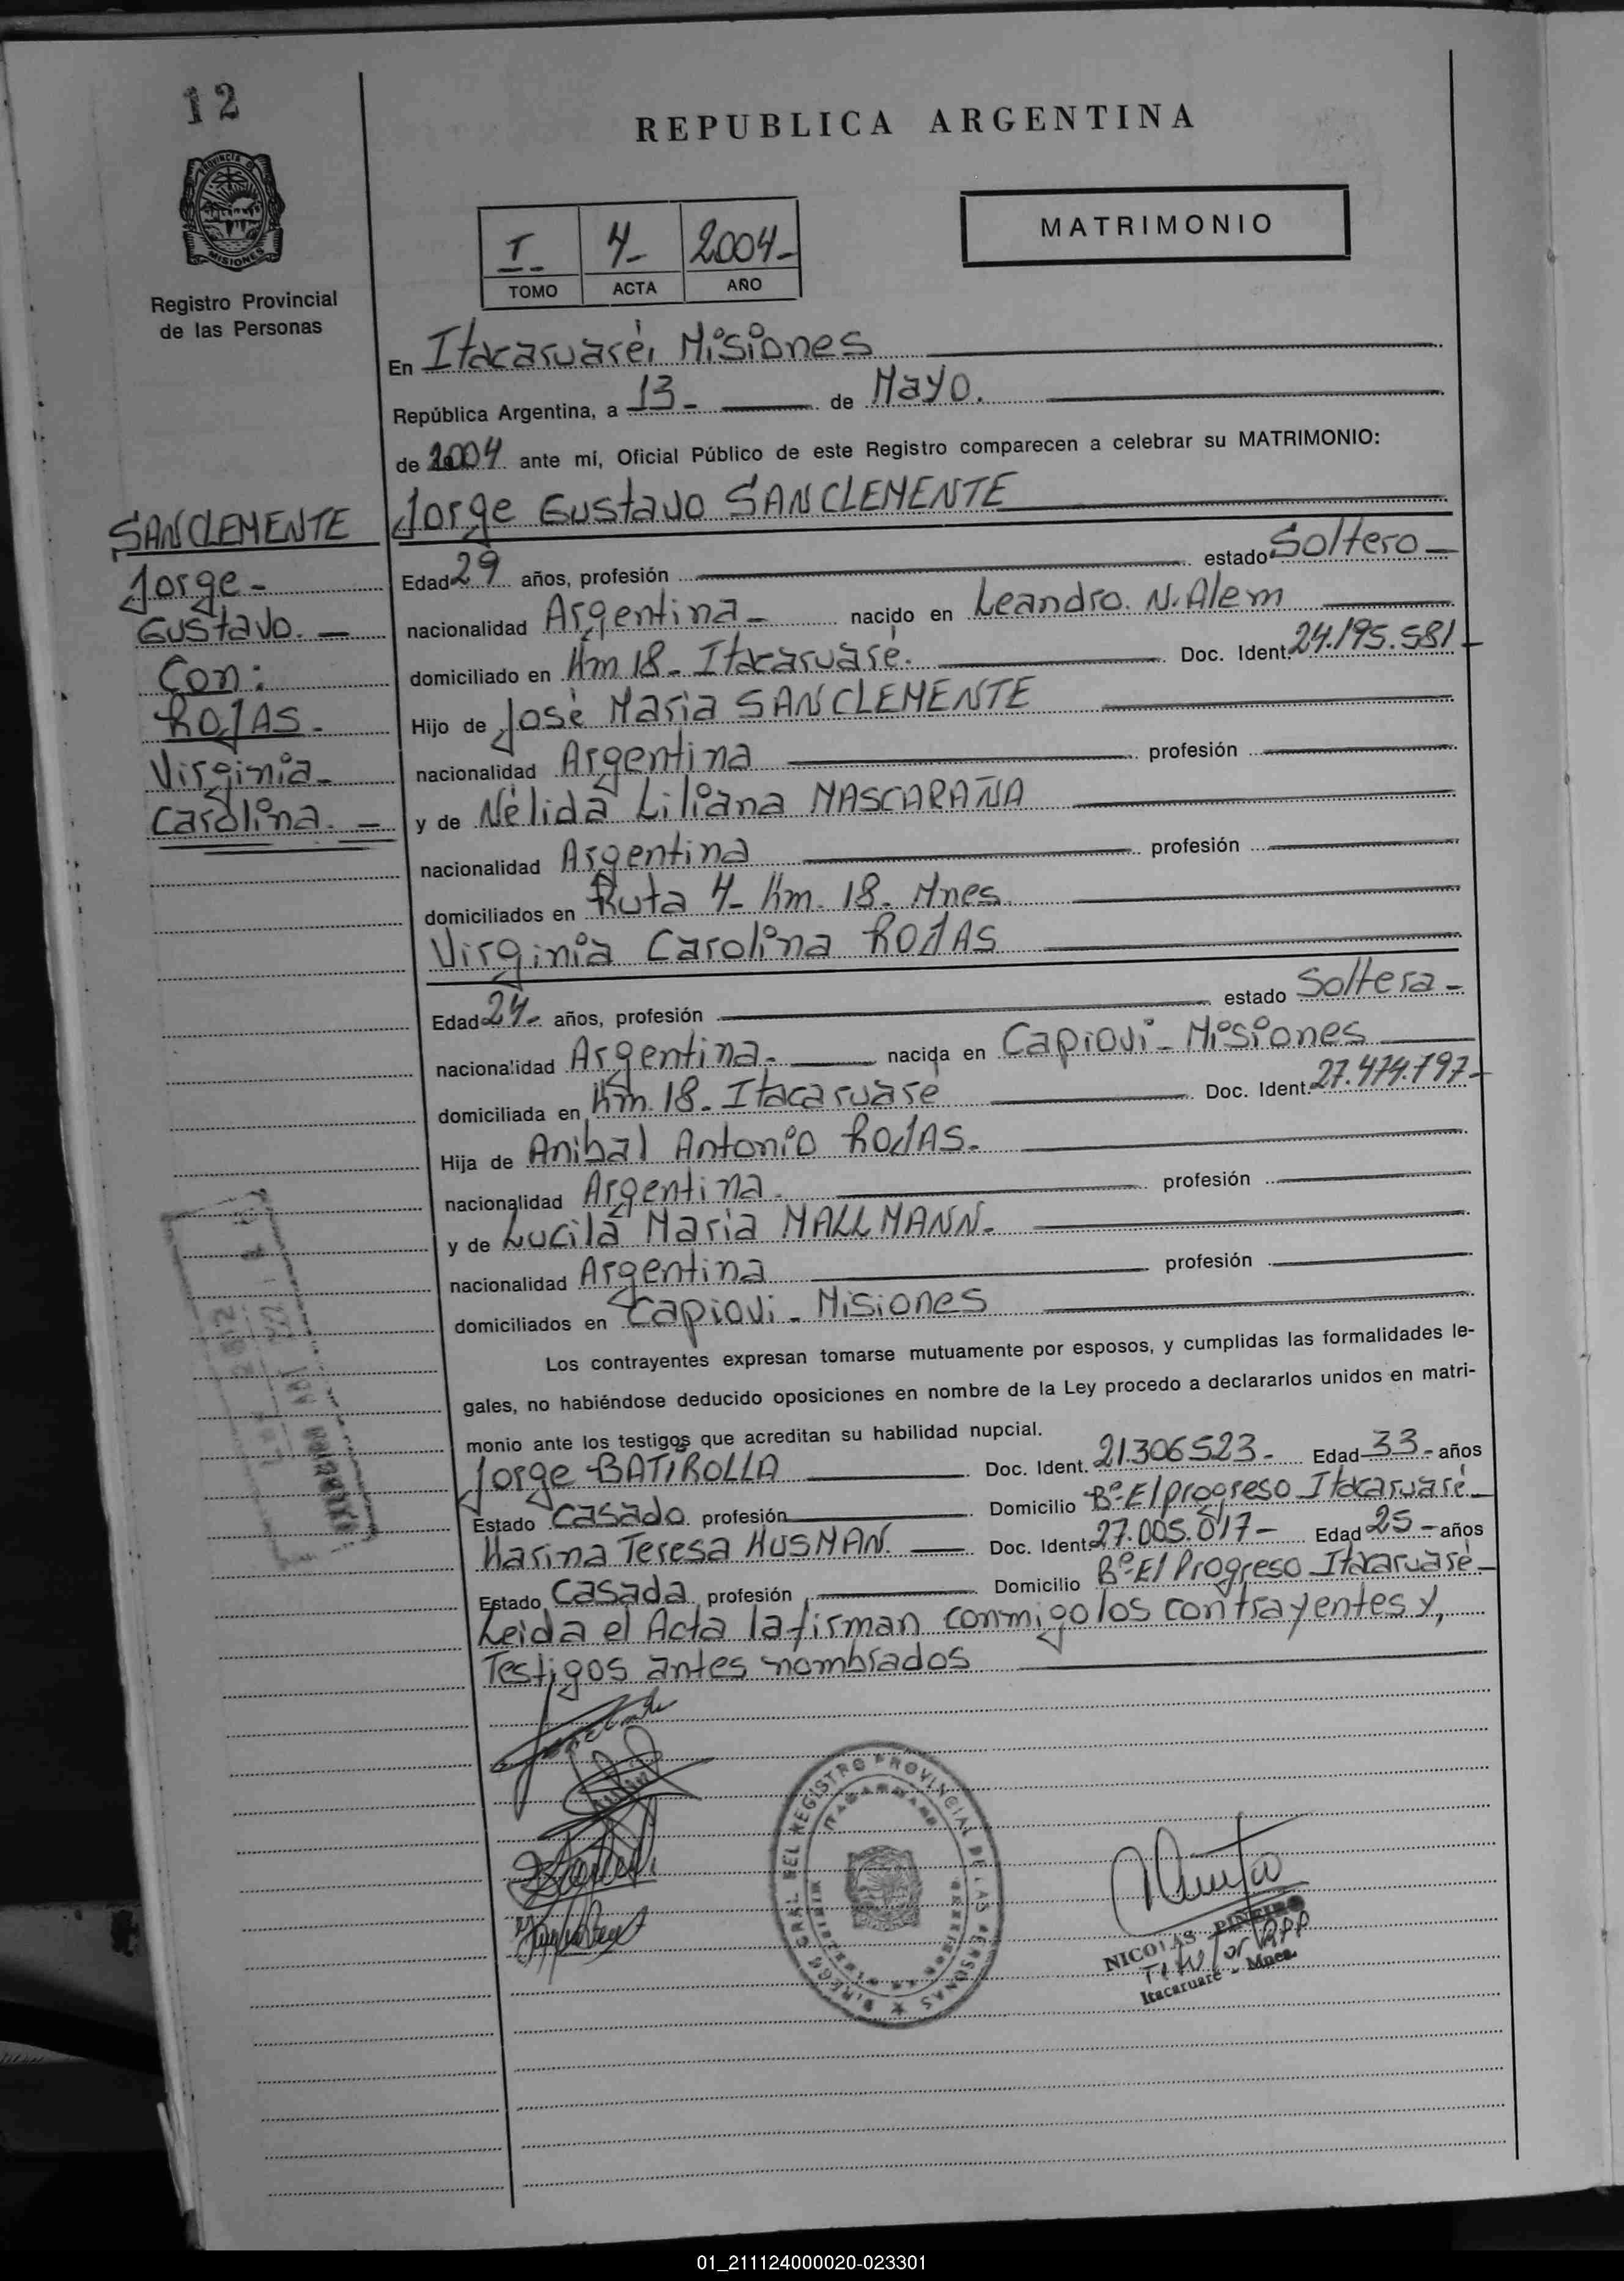 12
REPUBLICA ARGENTINA
PROVINCIA DE
MISIONES
Registro Provincial
de las Personas
MATRIMONIO
I- 4- 2004-
TOMO ACTA AÑO
En Itacaruaré, Misiones
República Argentina, a 13- de Mayo.
de 2004 ante mí, Oficial Público de este Registro comparecen a celebrar su MATRIMONIO:
SANCLEMENTE
Jorge-
Gustavo. -
Con:
ROJAS-
Virginia-
Carolina. -
Jorge Gustavo SANCLEMENTE
Edad 29 años, profesión estado Soltero-
nacionalidad Argentina- nacido en Leandro. N. Alem
domiciliado en Km 18- Itacaruaré. Doc. Ident. 24.195.581-
Hijo de José Maria SANCLEMENTE
nacionalidad Argentina profesión
y de Nélida Liliana MASCARAÑA
nacionalidad Argentina profesión
domiciliados en Ruta 4- Km. 18. Mnes.
Virginia Carolina ROJAS
Edad 24- años, profesión estado Soltera-
nacionalidad Argentina- nacida en Capiovi- Misiones
domiciliada en Km. 18. Itacaruare Doc. Ident. 27.474.797-
Hija de Anibal Antonio ROJAS-
nacionalidad Argentina. profesión
y de Lucila Maria MALLMANN-
nacionalidad Argentina profesión
domiciliados en Capiovi- Misiones
Los contrayentes expresan tomarse mutuamente por esposos, y cumplidas las formalidades le-
gales, no habiéndose deducido oposiciones en nombre de la Ley procedo a declararlos unidos en matri-
monio ante los testigos que acreditan su habilidad nupcial.
Jorge BATIROLLA Doc. Ident. 21.306.523- Edad 33- años
Estado Casado profesión Domicilio Bº- El progreso Itacaruaré-
Marina Teresa HUSMAN. Doc. Ident. 27.005.017- Edad 25- años
Estado Casada profesión Domicilio Bº- El Progreso Itacaruaré-
Leida el Acta la firman conmigo los contrayentes y,
Testigos antes nombrados
DIRECC. GRAL DEL REGISTRO PROVINCIAL DE LAS PERSONAS
NICOLAS PIÑEIRO
Titular RPP
Itacaruaré - Mnes.
01_211124000020-023301